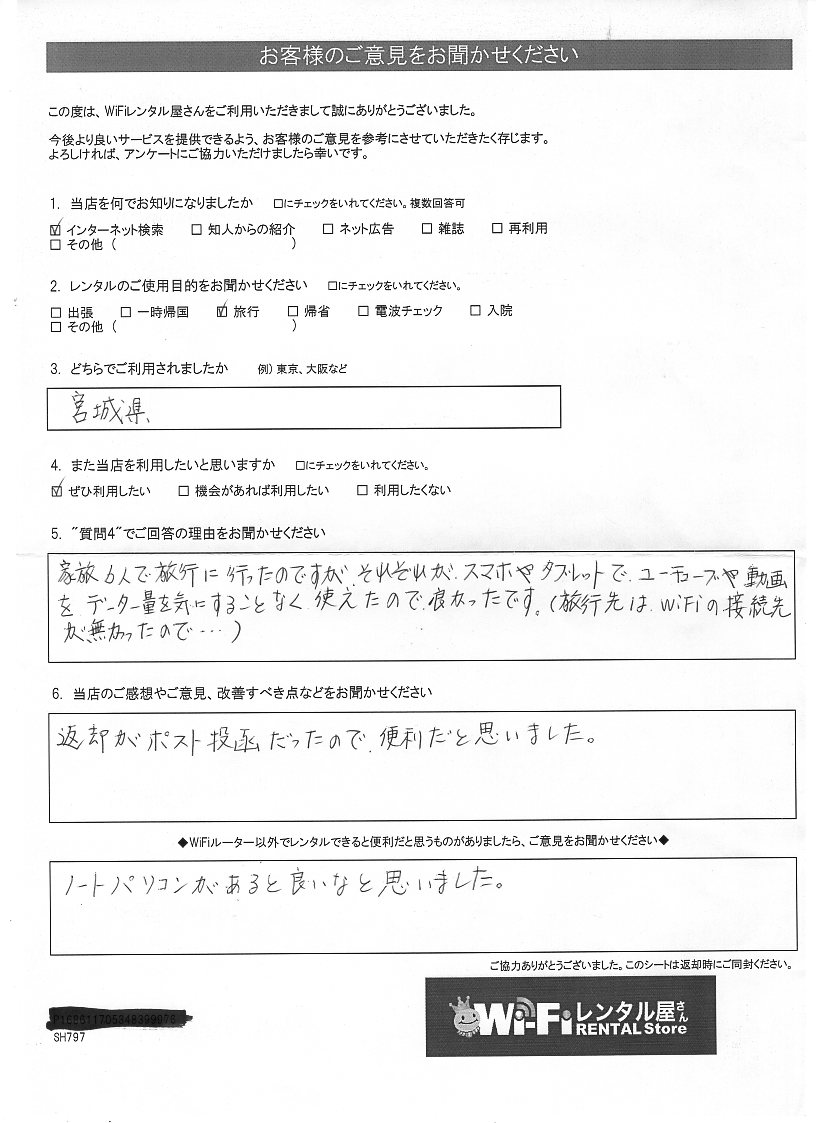 お客様のご意見をお聞かせください
この度は、WiFiレンタル屋さんをご利用いただきまして誠にありがとうございました。
今後より良いサービスを提供できるよう、お客様のご意見を参考にさせていただきたく存じます。
よろしければ、アンケートにご協力いただけましたら幸いです。
1. 当店を何でお知りになりましたか □にチェックをいれてください。複数回答可
☑ インターネット検索 □ 知人からの紹介 □ ネット広告 □ 雑誌 □ 再利用
□ その他 ( )
2. レンタルのご使用目的をお聞かせください □にチェックをいれてください。
□ 出張 □ 一時帰国 ☑ 旅行 □ 帰省 □ 電波チェック □ 入院
□ その他 ( )
3. どちらでご利用されましたか 例) 東京、大阪など
宮城県、
4. また当店を利用したいと思いますか □にチェックをいれてください。
☑ ぜひ利用したい □ 機会があれば利用したい □ 利用したくない
5. "質問4"でご回答の理由をお聞かせください
家族6人で旅行に行ったのですが、それぞれが、スマホやタブレットで、ユーチューブや動画
を、データー量を気にすることなく、使えたので、良かったです。(旅行先は、WiFiの接続先
が無かったので…)
6. 当店のご感想やご意見、改善すべき点などをお聞かせください
返却がポスト投函だったので、便利だと思いました。
◆WiFiルーター以外でレンタルできると便利だと思うものがありましたら、ご意見をお聞かせください◆
ノートパソコンがあると良いなと思いました。
ご協力ありがとうございました。このシートは返却時にご同封ください。
Wi-Fiレンタル屋さん
RENTAL Store
SH797